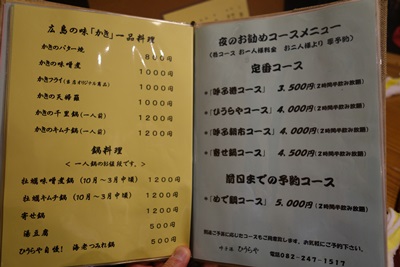 広島の味「かき」一品料理
かきのバター焼 800円
かきの味噌煮 1000円
かきフライ 1000円
かきの天婦羅 1000円
かきの千里鍋(一人前) 1200円
かきのキムチ鍋(一人前) 1200円
鍋料理
<一人鍋のお値段です。>
牡蠣味噌煮鍋(10月〜3月中頃) 1200円
牡蠣キムチ鍋(10月〜3月中頃) 1200円
寄せ鍋 1200円
湯豆腐 500円
ひうらや自慢!海老つみれ鍋 500円
夜のお勧めコースメニュー
(各コース お一人様料金 お二人様より 要予約)
定番コース
コース」 3.500円(2時間半飲み放題)
「ひうらやコース」 4.000円(2時間半飲み放題)
コース」 4.000円(2時間半飲み放題)
「寄せ鍋コース」 4.500円(2時間半飲み放題)
前日までの予約コース
「めで鯛コース」 5.000円(2時間半飲み放題)
ご予算に応じたコースもご用意致します。お気軽にご予約下さい。
ひうらや 電話082-247-1517